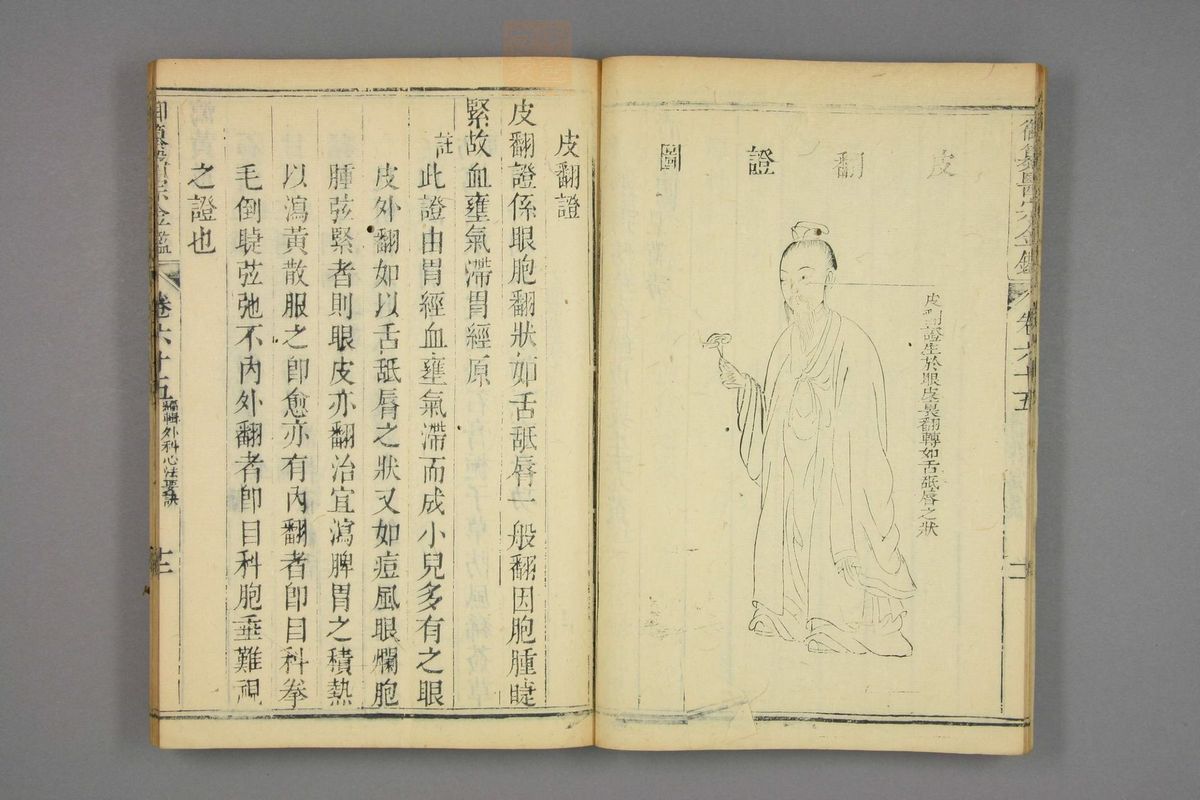 御纂醫宗金鑑 卷六十五
皮翻證圖
皮翻證生於眼皮異翻轉如舌䑛唇之狀
皮翻證
皮翻證係眼胞翻狀如舌舐唇一般翻因胞腫睫
緊故血壅氣滯胃經原
註此證由胃經血壅氣滯而成小兒多有之眼
皮外翻如以舌舐唇之狀又如痘風眼爛胞
腫弦緊者則眼皮亦翻治宜瀉脾胃之積熱
以瀉黃散服之卽愈亦有內翻者卽目科拳
毛倒睫弦弛不內外翻者卽目科胞垂難視
之證也
御纂醫宗金鑑 卷六十五 編輯外科心法要訣 十二